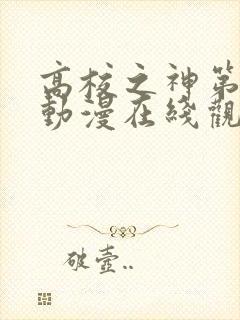 高校之神第
動漫在綫觀
破壺..